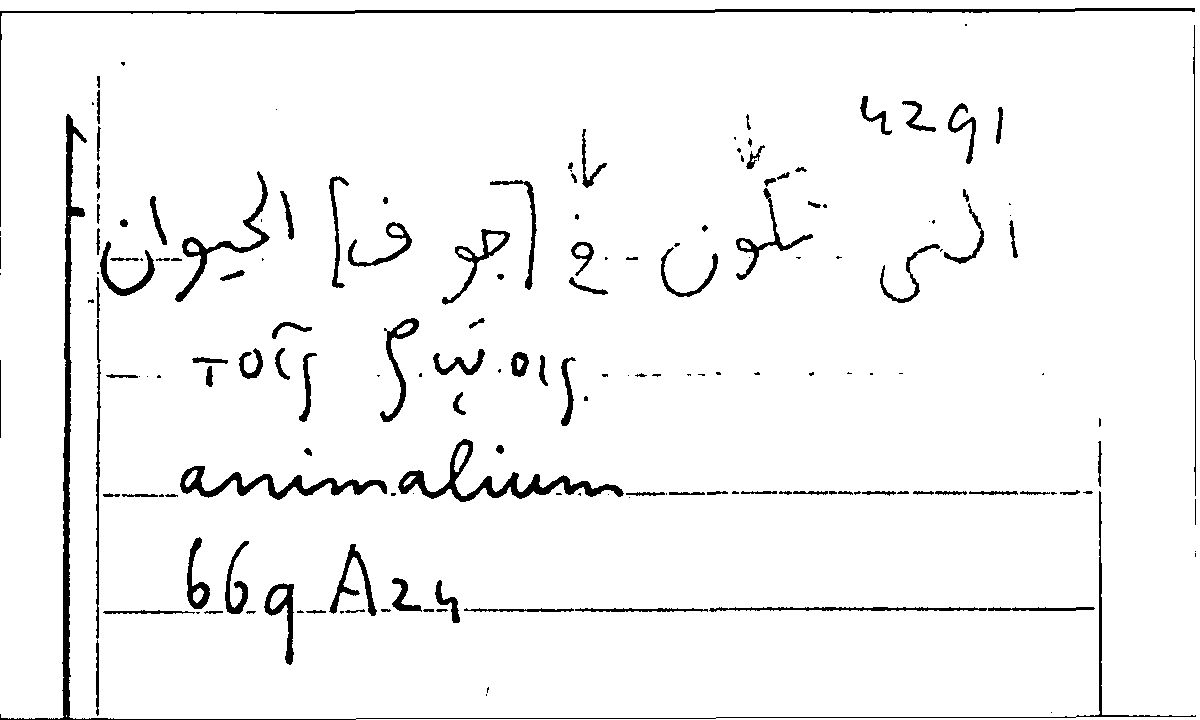 4291
التى تكون فى [جوف] الحيوان
τοῖς ζῴοις.
animalium
669 A24